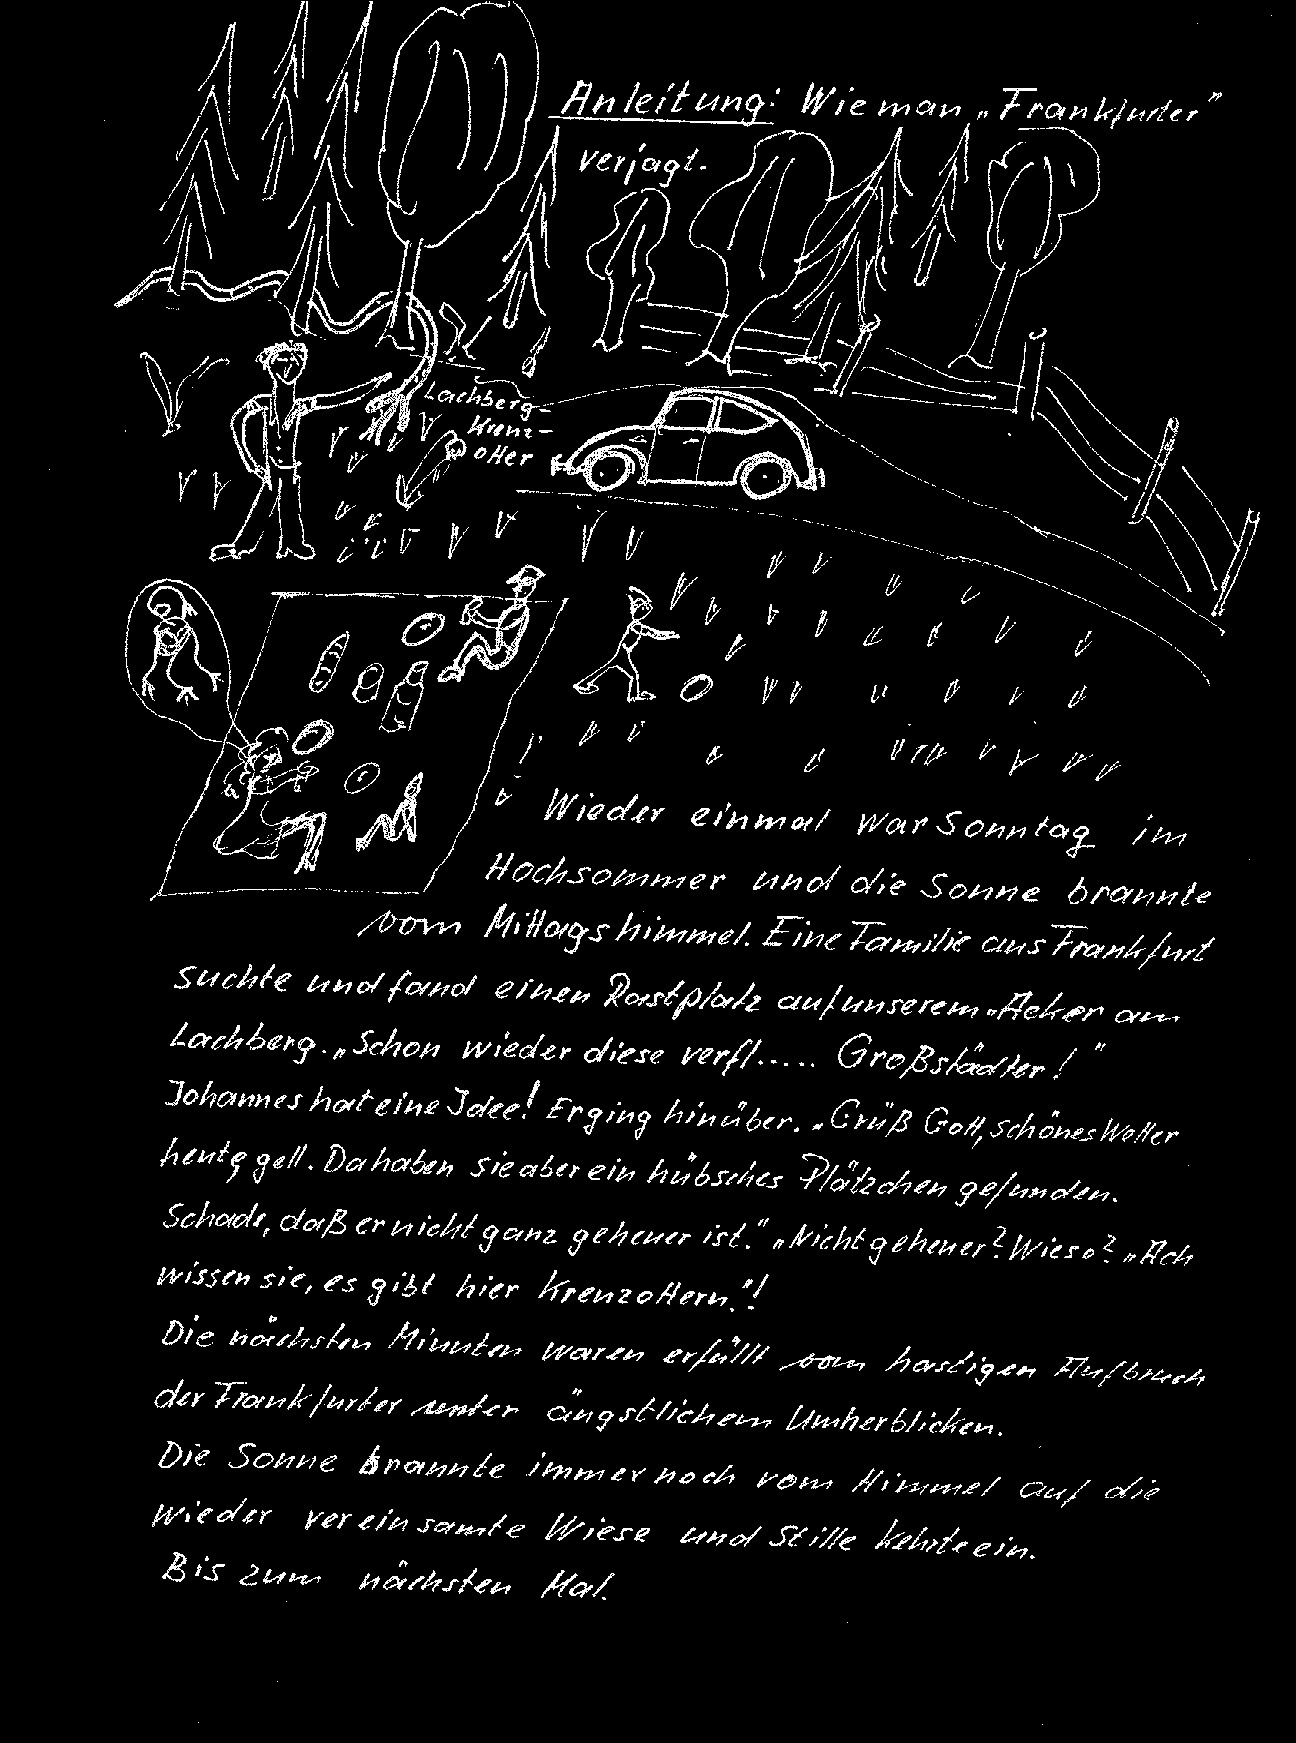 Anleitung: Wie man „Frankfurter"
verjagt.
Lachberg-
Kreuz-
otter
Wieder einmal war Sonntag im
Hochsommer und die Sonne brannte
vom Mittagshimmel. Eine Familie aus Frankfurt
suchte und fand einen Rastplatz auf unserem „Acker am
Lachberg. „Schon wieder diese verfl..... Großstädter!"
Johannes hat eine Idee! Er ging hinüber. „Grüß Gott, schönes Wetter
heute, gell. Da haben sie aber ein hübsches Plätzchen gefunden.
Schade, daß er nicht ganz geheuer ist." „Nicht geheuer? Wieso? „Ach
wissen sie, es gibt hier Kreuzottern."!
Die nächsten Minuten waren erfüllt vom hastigen Aufbruch
der Frankfurter unter ängstlichem Umherblicken.
Die Sonne brannte immer noch vom Himmel auf die
wieder vereinsamte Wiese und Stille kehrte ein.
Bis zum nächsten Mal.